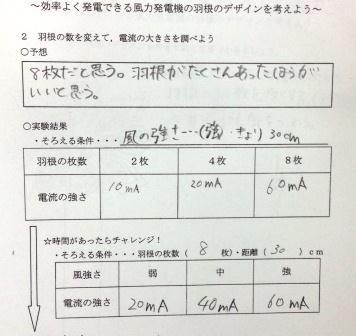 ～効率よく発電できる風力発電機の羽根のデザインを考えよう～
２ 羽根の数を変えて，電流の大きさを調べよう
○予想
8枚だと思う。羽根がたくさんあったほうが
いいと思う。
○実験結果
・そろえる条件・・・風の強さ…(強)・きょり 30cm
羽根の枚数 ２枚 ４枚 ８枚
電流の強さ 10mA 20mA 60mA
☆時間があったらチャレンジ！
・そろえる条件・・・羽根の枚数（ 8 枚）・距離（ 30 ）ｃｍ
風強さ 弱 中 強
電流の強さ 20mA 40mA 60mA